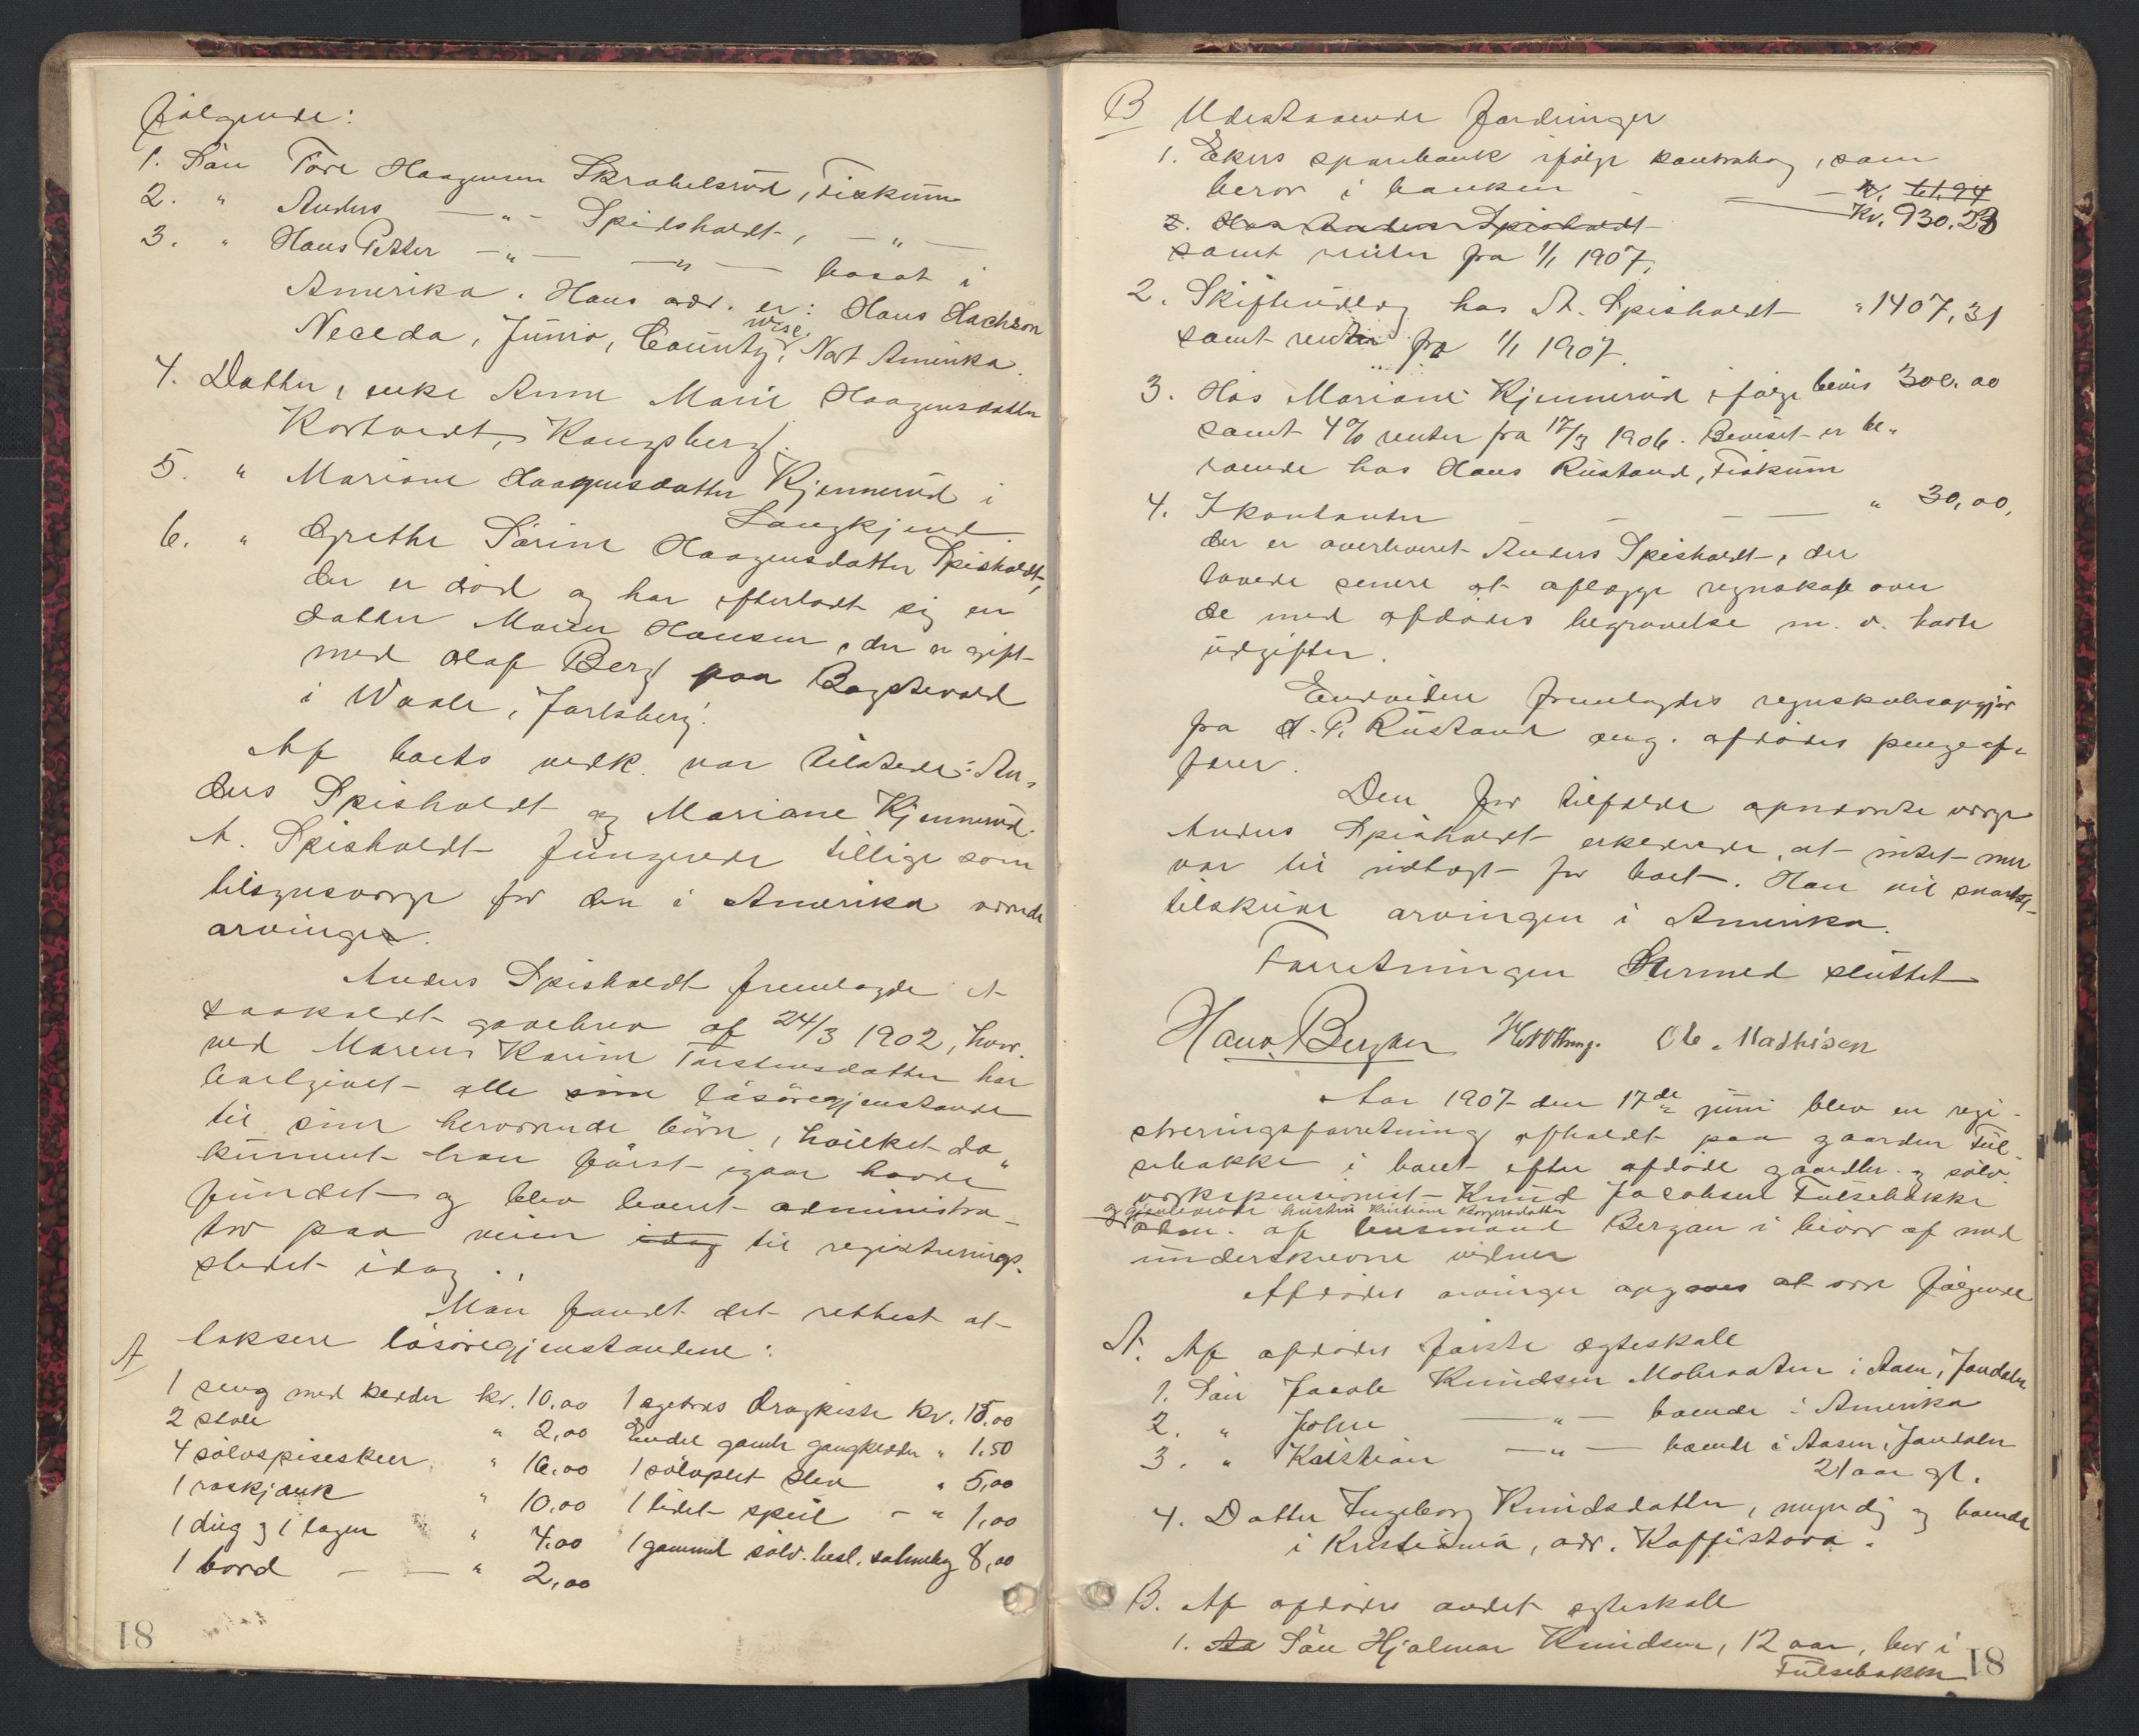 følgende:
1. Søn Tore Haagensen Skrabelsrud, Fiskum
2. " Anders —"— Spidsholdt, —"—
3. " Hans Petter —"— —"— bosat i
Amerika. Hans adr. er: Hans Hachson
Neceda, Junio, County, Wisc. Nort Amerika.
4. Datter, enke Anne Marie Haagensdatter
Kongsberg.
5. " Mariane Haagensdatter Kjennerud i
6. " Grethe Sørine Haagensdatter Spisholdt,
der er død og har efterladt sig en
datter Maren Hansen, der er gift
med Olaf Berg paa Bogstevold
i Waale, Jarlsberg.
Af boets vedk. var tilstede: An-
ders Spisholdt og Mariane Kjennerud.
A. Spisholdt fungerede tillige som
tilsynsværge for den i Amerika værende
arvinger.
Anders Spisholdt fremlagde et
saakaldt gavebrev af 24/3 1902, hvor-
ved Maren Karine Torstensdatter har
bortgivet alle sine løsøregjenstande
til sine herværende børn, hvilket do-
kument han først igaar havde
fundet og blev leveret administra-
tor paa veien idag til registrerings-
stedet idag.
Man fandt det rettest at
A taksere løsøregjenstandene:
1 seng med klæder kr. 10,00 1 egetræs dragkiste kr. 15,00
2 stole " 2,00 Endel gamle gangklæder " 1,50
4 sølvspiseskeer " 16,00 1 sølvplet slev " 5,00
1 " 10,00 1 lidet speil - " 1,00
1 dug og 1 lagen " 4,00 1 gammel sølv. besl. salmebog 8,00
1 bord — — " 2,00
81
B Udestaaende fordringer
1. Ekers sparebank ifølge kontrabog, som
beror i banken — kr. 61,94
Kr. 930,23
2. Hos Anders Spisholdt
samt renter fra 1/1 1907.
2. Skifteudlæg hos A. Spisholdt " 1407,31
samt renter fra 1/1 1907.
3. Hos Mariane Kjennerud ifølge bevis 300,00
samt 4% renter fra 12/3 1906. Beviset er be-
roende hos Hans Rustand, Fiskum
4. I kontanter — — — " 30,00,
der er overleveret Anders Spisholdt, der
lovede senere at aflægge regnskab over
de med afdødes begravelse m. v. havte
udgifter.
Endvidere fremlagdes regnskabsopgjør
fra H. P. Rustand ang. afdødes pengeaf-
færer.
Den for tilfælde opnævnte værge
Anders Spisholdt erklærede, at intet mer
var til indtægt for boet. Han vil snarest
tilskrive arvingen i Amerika.
Forretningen hermed sluttet
Hans Bergan Ole Mathisen
Aar 1907 den 17de juni blev en regi-
streringsforretning afholdt paa gaarden Ful-
sebakke i boet efter afdøde gaardbr. og sølv-
verkspensionist Knud Jacobsen Fulsebakke
og gjenlevende hustru Kristiane Borgersdatter
adm. af lensmand Bergan i bivær af med
underskrevne vidner
Afdødes arvinger opgaves at være følgende
A. Af afdødes første ægteskab
1. Søn Jacob Knudsen Mobraaten i Aasen, Jondalen
2. " John —"— boende i Amerika
3. " Kristian —"— boende i Aasen, Jondalen
21 aar gl.
4. Datter Ingeborg Knudsdatter, myndig og boende
i Kristiania, adr. Kaffistova.
B. Af afdødes andet ægteskab
1. Søn Hjalmar Knudsen, 12 aar, bor i
Fulsebakke
81